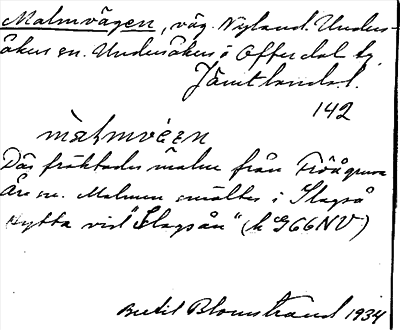 Malmvägen, väg. Nyland. Under-
åkers sn. Undersåkers i Offerdal tg.
Jämtlands l.
142
màlmvéɛn
Där fraktades malm från Fröågruva
Åre sn. Malmen smältes i Slagså
hytta vid "Slagsån" (k G66NV)
Bertil Blomstrand 1934